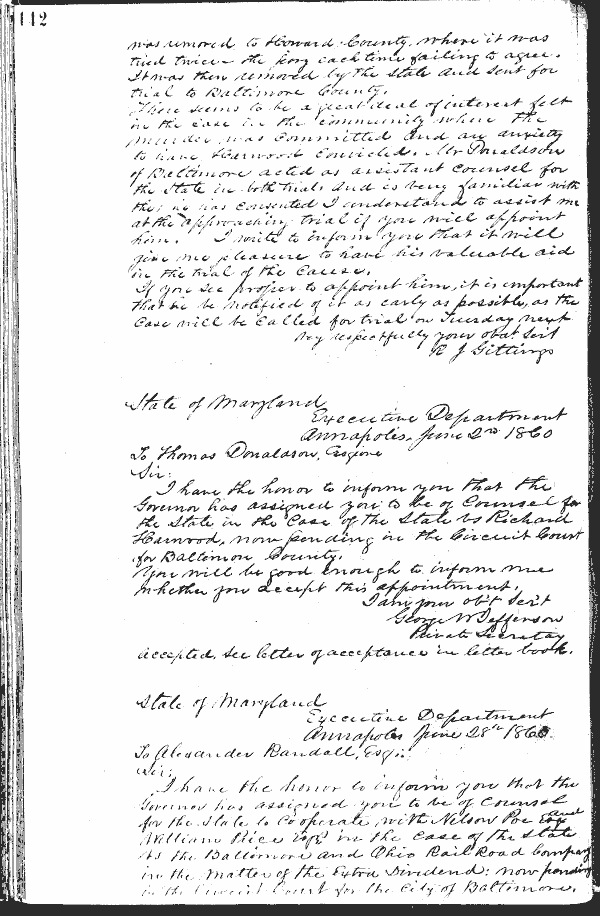 112
was removed to Howard County, where it was
tried twice - the jury each time failing to agree.
It was then removed by the State and sent for
trial to Baltimore County.
There seems to be a great deal of interest felt
in the case in the community where the
murder was committed and an anxiety
to have Harwood convicted. Mr Donaldson
of Baltimore acted as assistant counsel for
the State in both trials and is very familiar with
he has consented I understand to assist me
at the approaching trial if you will appoint
him. I write to inform you that it will
give me pleasure to have his valuable aid
in the trial of the Cause.
If you see proper to appoint him, it is important
that he be notified of it as early as possible, as the
Case will be called for trial on Tuesday next
Very respectfully your obdt Svt
R J Gittings
State of Maryland
Executive Department
Annapolis, June 2nd 1860
To Thomas Donaldson, Esquire
Sir:
I have the honor to inform you that the
Govenor has assigned you to be of Counsel for
the State in the Case of the State vs Richard
Harwood, now pending in the Circuit Court
for Baltimore County.
You will be good enough to inform me
whether you accept this appointment.
I am your ob't Ser't
George W Jefferson
Private Secretary
accepted, see letter of acceptance in letter book.
State of Maryland
Executive Department
Annapolis June 28th 1860
To Alexander Randall, Esq:
Sir:
I have the honor to inform you that the
Governor has assigned you to be of Counsel
for the State to Cooperate with Nelson Poe Esq and
William Price Esqr in the Case of the State
vs the Baltimore and Ohio Rail Road Company
in the matter of the Extra Dividend: now pending
in the Circuit Court for the City of Baltimore.